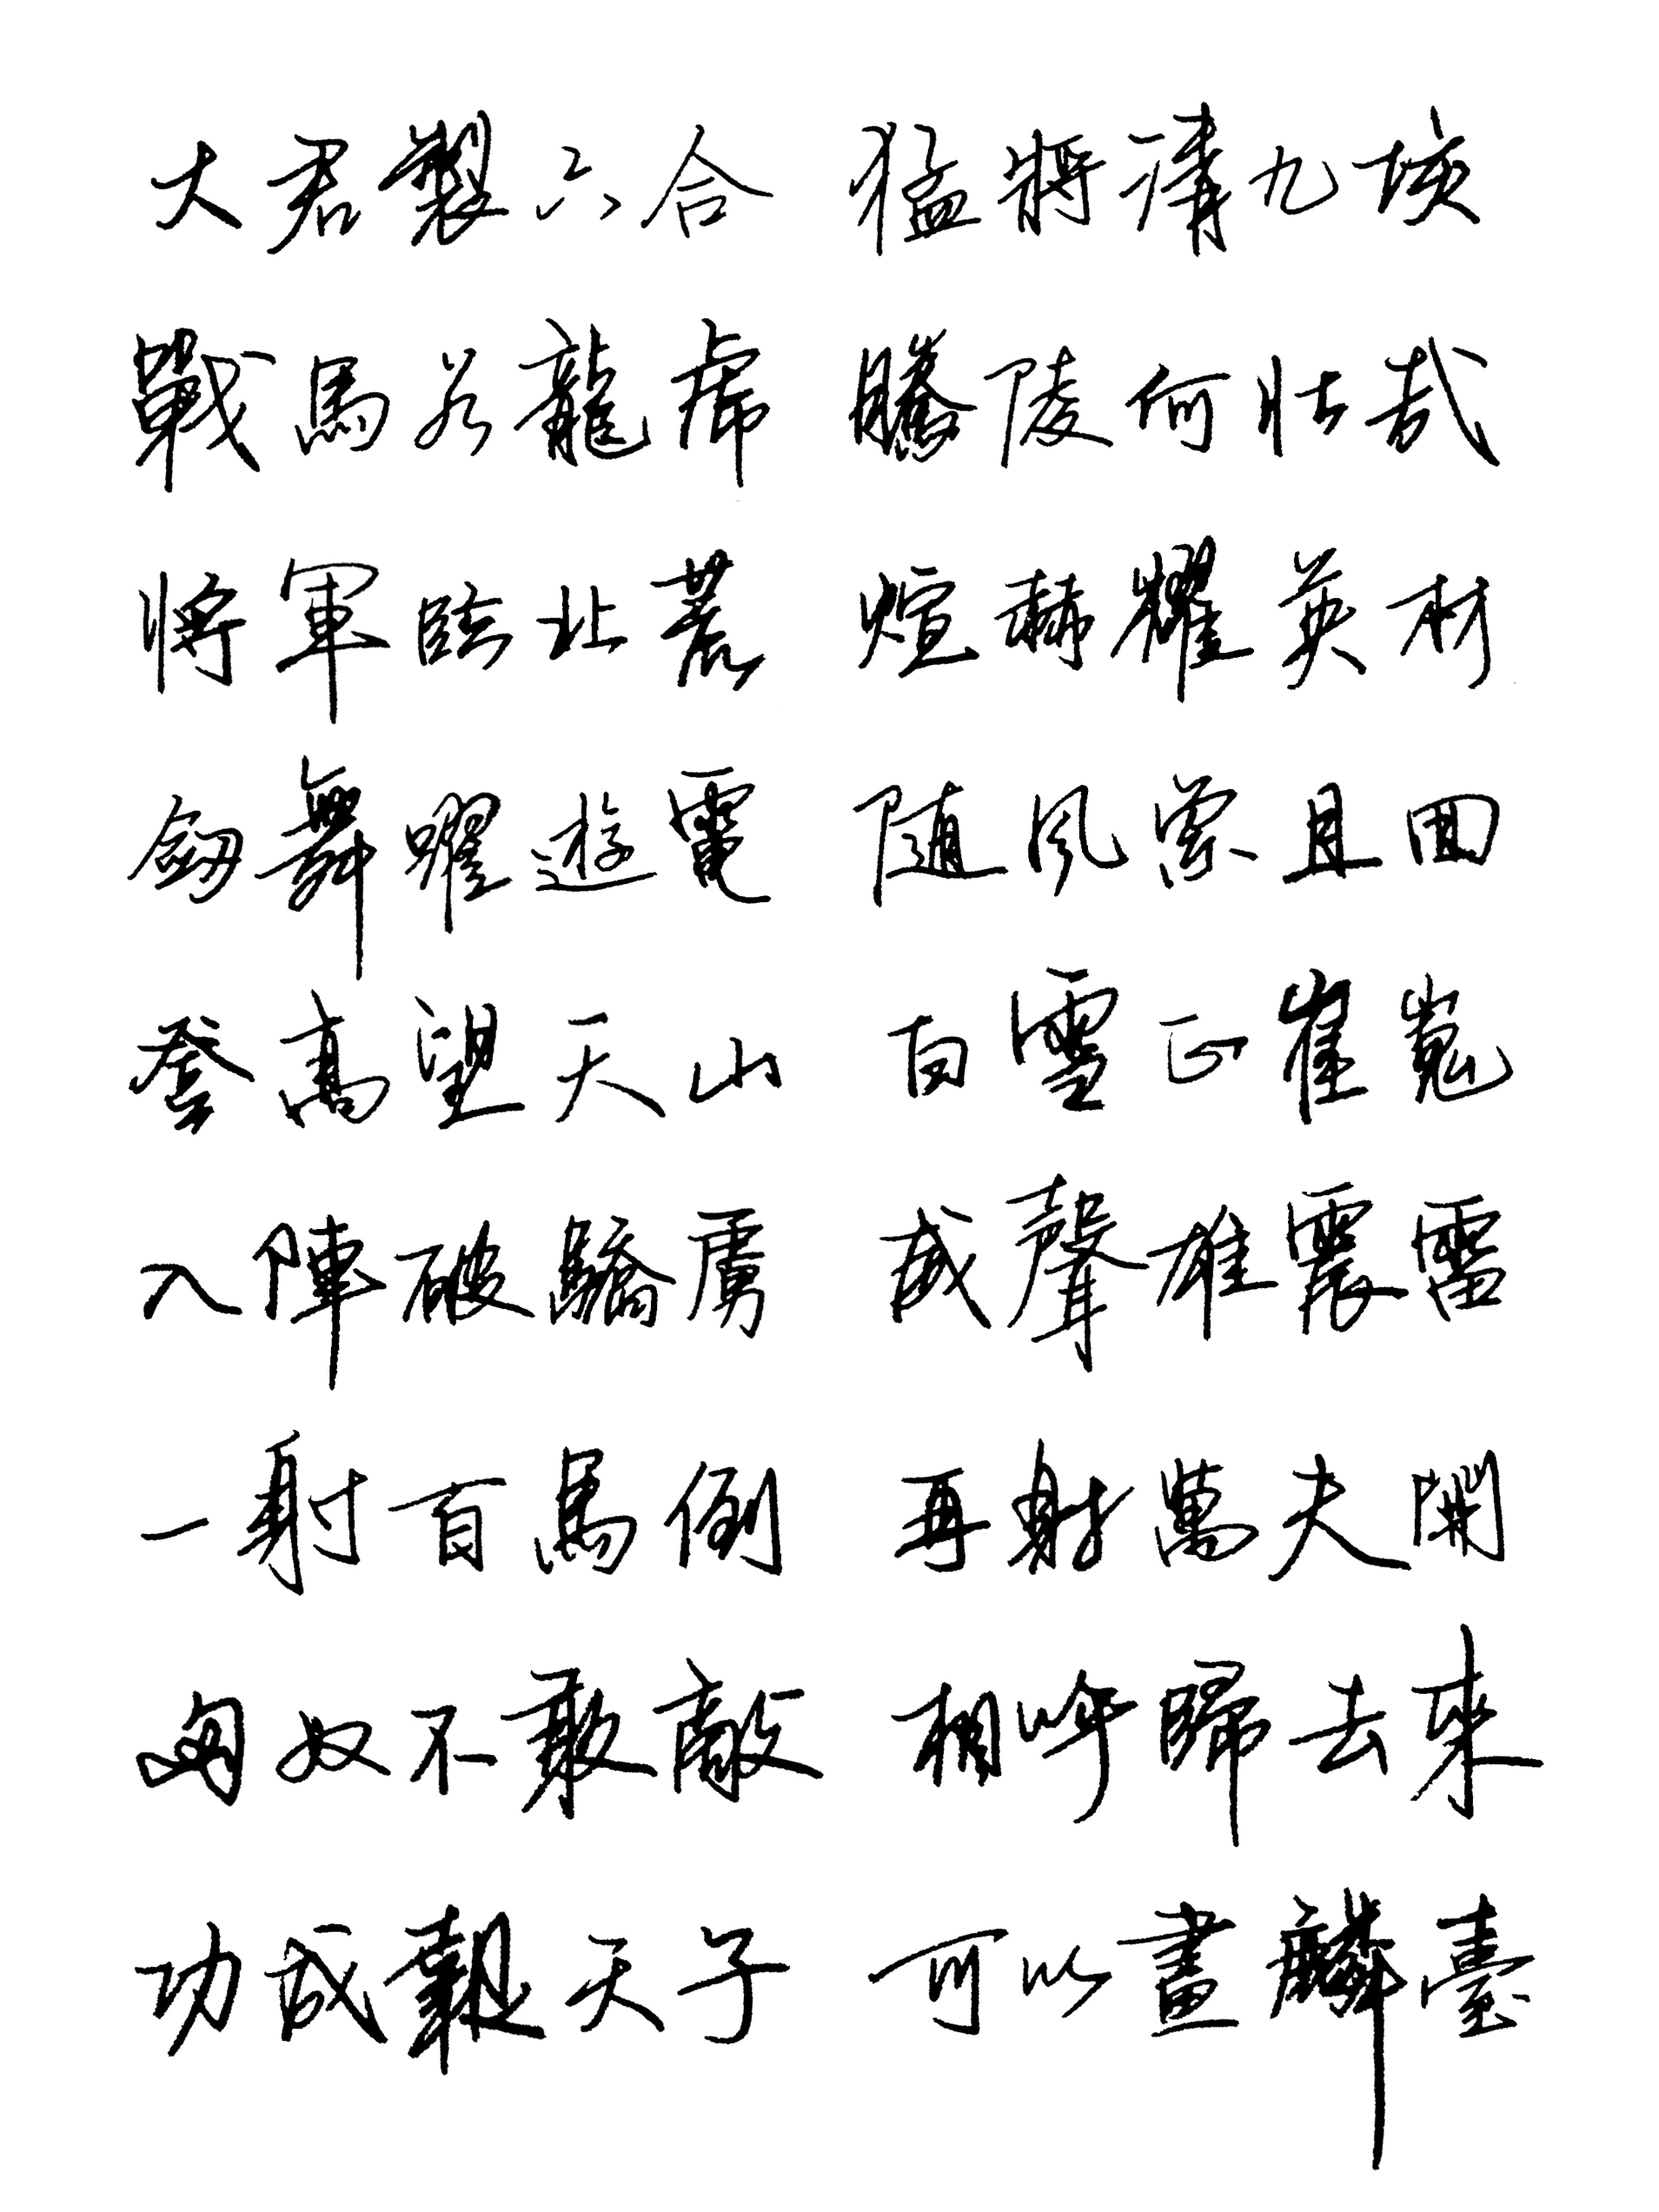 大君製六合　猛將清九垓
戰馬若龍虎　騰陵何壯哉
將軍臨北荒　烜赫耀英材
劒舞躍遊電　隨風縈且回
登高望天山　白雪正崔嵬
入陣破驕虜　威聲雄震雷
一射百馬倒　再射萬夫開
匈奴不敢敵　相呼歸去來
功成報天子　可以畫麟臺